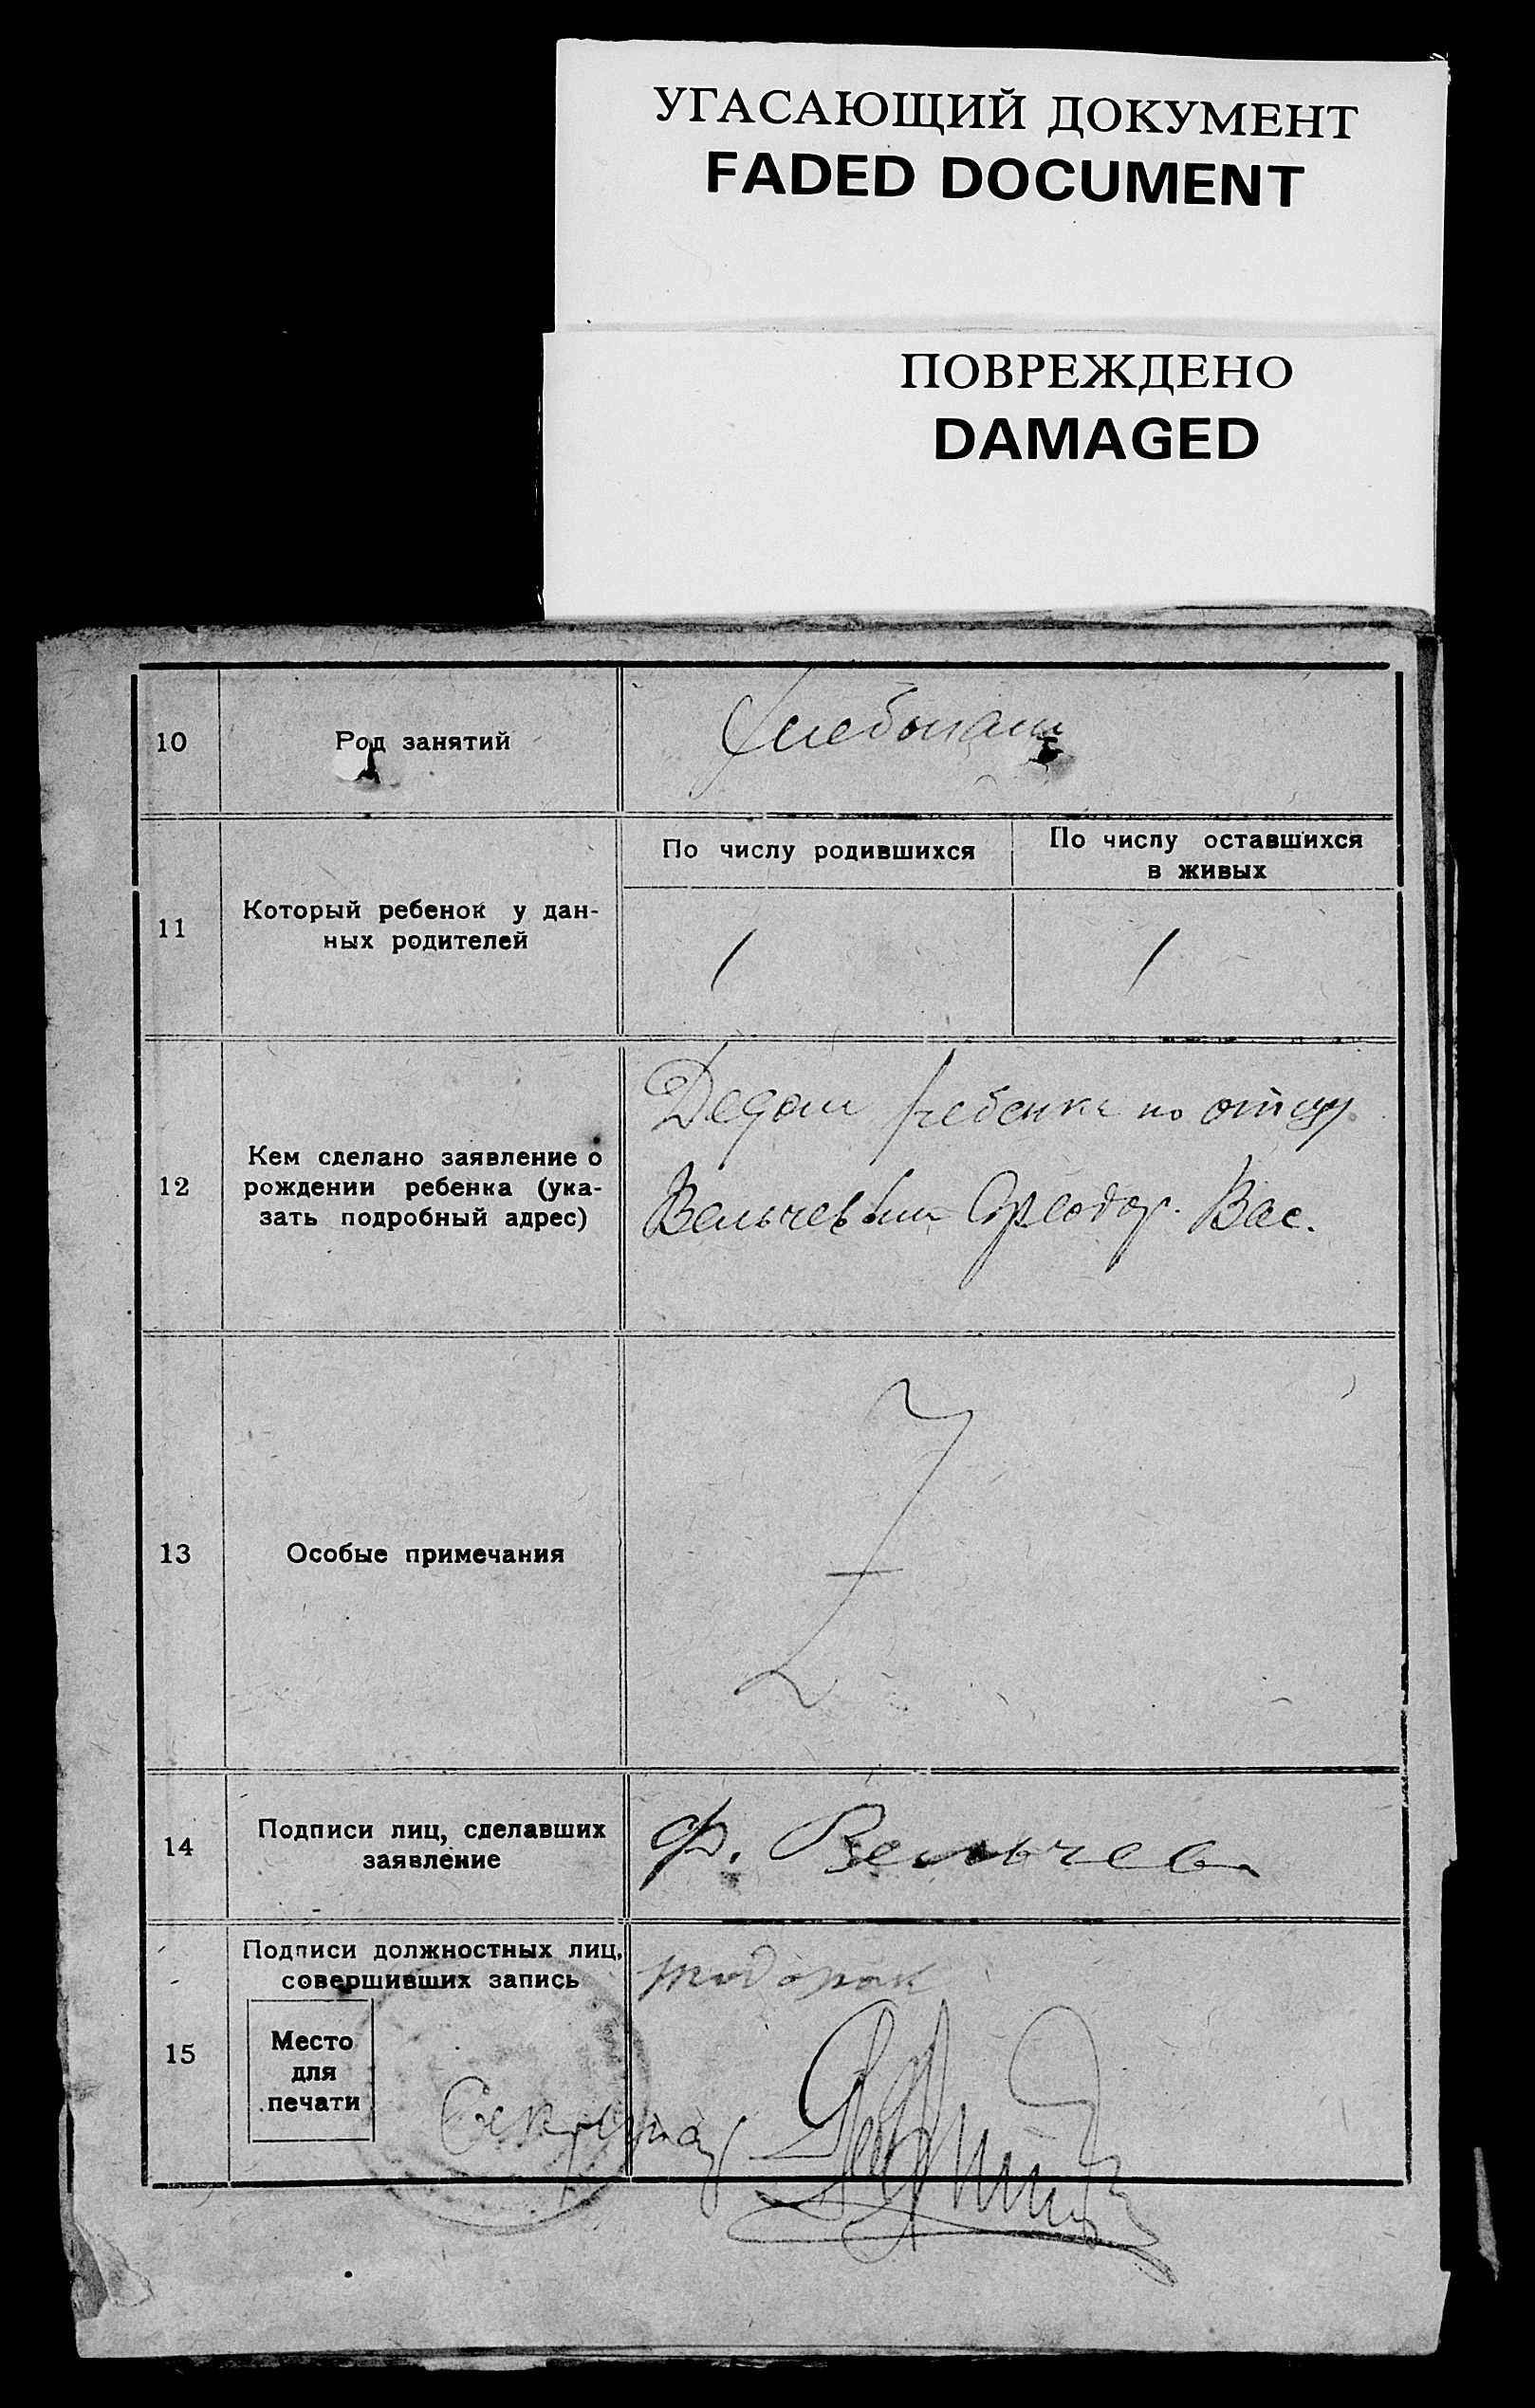 УГАСАЮЩИЙ ДОКУМЕНТ
FADED DOCUMENT
ПОВРЕЖДЕНО
DAMAGED
10
Род занятий
Хлебопаш
11
Который ребенок у дан-
ных родителей
По числу родившихся
По числу оставшихся
в живых
1
1
12
Кем сделано заявление о
рождении ребенка (ука-
зать подробный адрес)
Дедом ребенка по отцу
Вельчевым Феодор. Вас.
13
Особые примечания
Z
14
Подписи лиц, сделавших
заявление
Ф. Вельчев
15
Подписи должностных лиц,
совершивших запись
Место
для
печати
Секретар